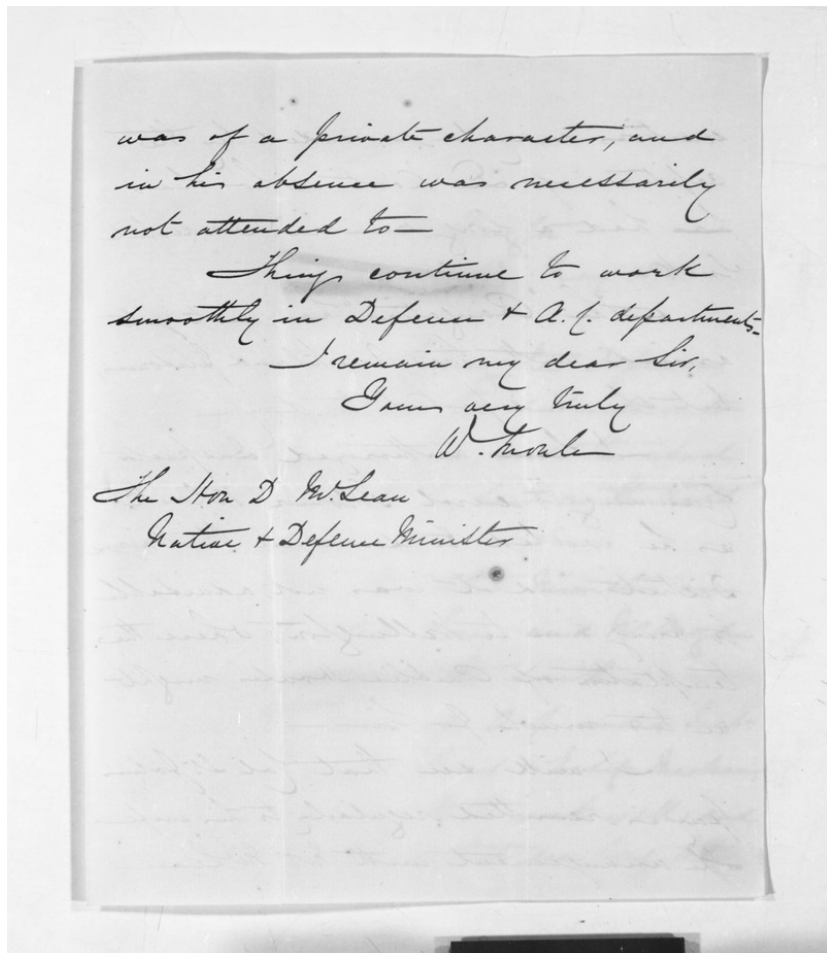 was of a private character, and
in his absence was necessarily
not attended to—
Things continue to work
smoothly in Defence & A. C. departments—
I remain my dear Sir,
Yours very truly
W. Moule
The Hon D McLean
Native & Defence Minister